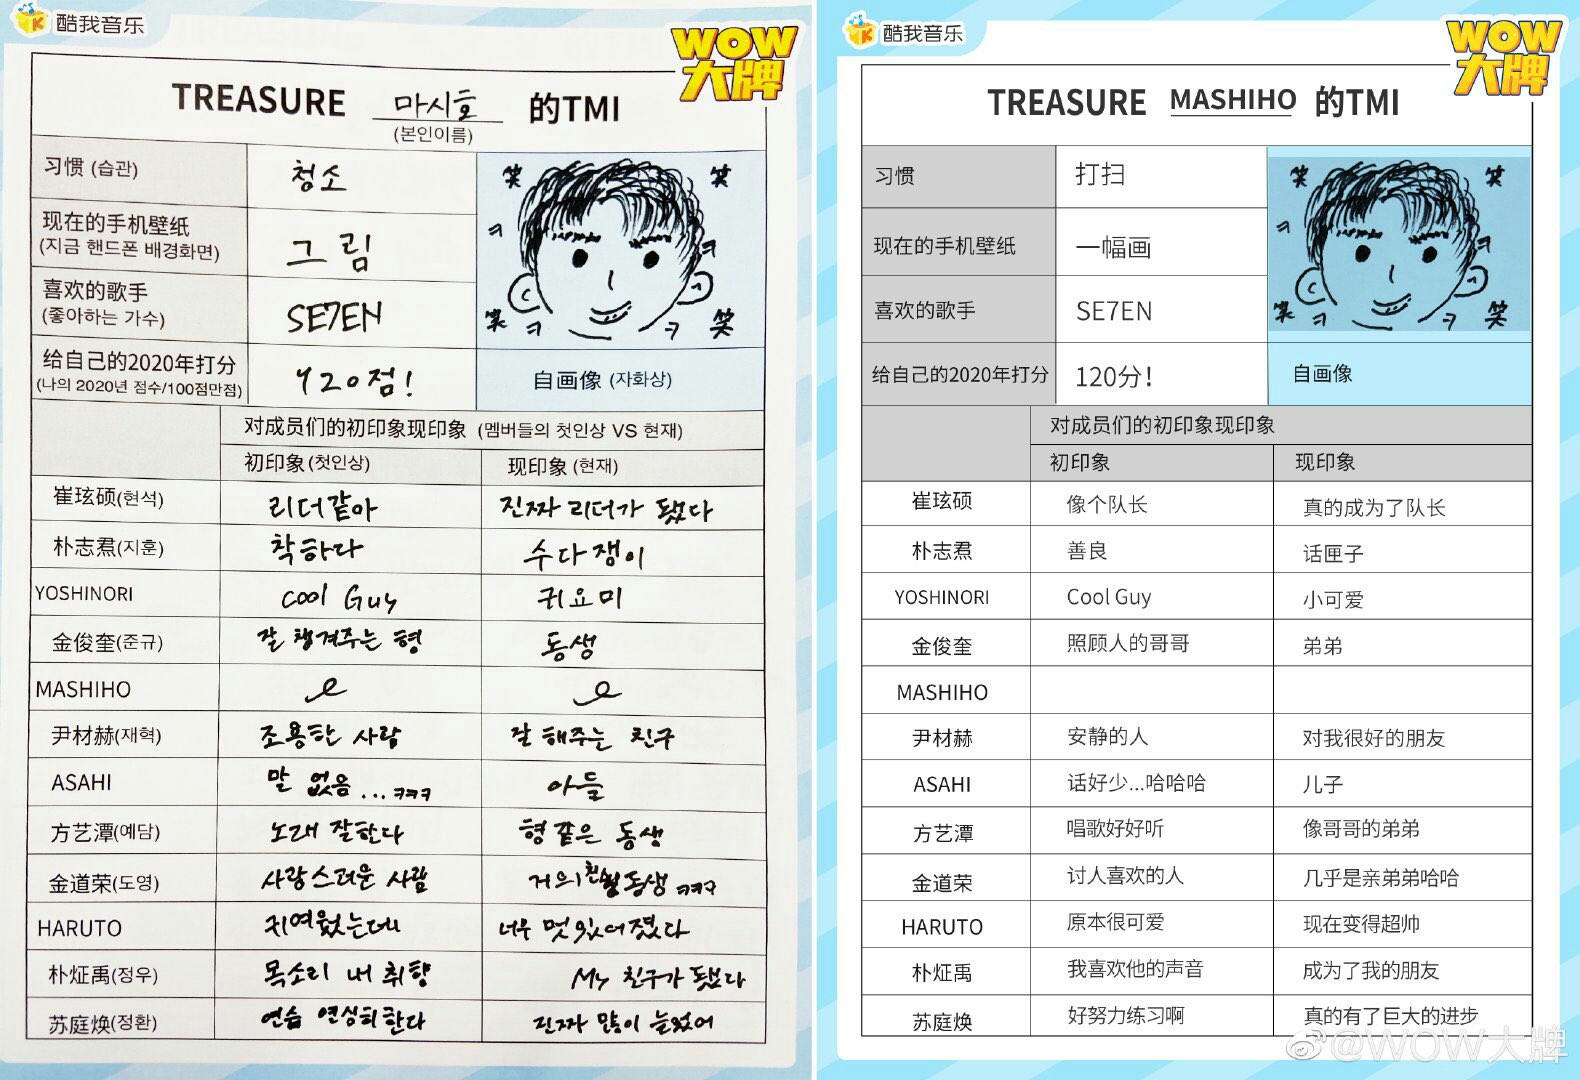 酷我音乐
WOW
大牌
TREASURE 마시호 的TMI
(본인이름)
习惯 (습관)
청소
现在的手机壁纸
(지금 핸드폰 배경화면)
그림
喜欢的歌手
(좋아하는 가수)
SE7EN
给自己的2020年打分
(나의 2020년 점수/100점만점)
120점!
笑 笑
ㅋ ㅋ
笑 ㅋ ㅋ 笑
自画像 (자화상)
对成员们的初印象现印象 (멤버들의 첫인상 VS 현재)
初印象 (첫인상) 现印象 (현재)
崔玹硕(현석) 리더같아 진짜 리더가 됐다
朴志焄(지훈) 착하다 수다쟁이
YOSHINORI Cool Guy 귀요미
金俊奎(준규) 잘 챙겨주는 형 동생
MASHIHO
尹材赫(재혁) 조용한 사람 잘해주는 친구
ASAHI 말 없음...ㅋㅋㅋ 아들
方艺潭(예담) 노래 잘한다 형 같은 동생
金道荣(도영) 사랑스러운 사람 거의 친동생 ㅋㅋㅋ
HARUTO 귀여웠는데 너무 멋있어졌다
朴炡禹(정우) 목소리 내 취향 My 친구가 됐다
苏庭焕(정환) 연습 열심히 한다 진짜 많이 늘었어
酷我音乐
WOW
大牌
TREASURE MASHIHO 的TMI
习惯 打扫
现在的手机壁纸 一幅画
喜欢的歌手 SE7EN
给自己的2020年打分 120分!
笑 笑
ㅋ ㅋ
笑 ㅋ ㅋ 笑
自画像
对成员们的初印象现印象
初印象 现印象
崔玹硕 像个队长 真的成为了队长
朴志焄 善良 话匣子
YOSHINORI Cool Guy 小可爱
金俊奎 照顾人的哥哥 弟弟
MASHIHO
尹材赫 安静的人 对我很好的朋友
ASAHI 话好少...哈哈哈 儿子
方艺潭 唱歌好好听 像哥哥的弟弟
金道荣 讨人喜欢的人 几乎是亲弟弟哈哈
HARUTO 原本很可爱 现在变得超帅
朴炡禹 我喜欢他的声音 成为了我的朋友
苏庭焕 好努力练习啊 真的有了巨大的进步
@WOW大牌